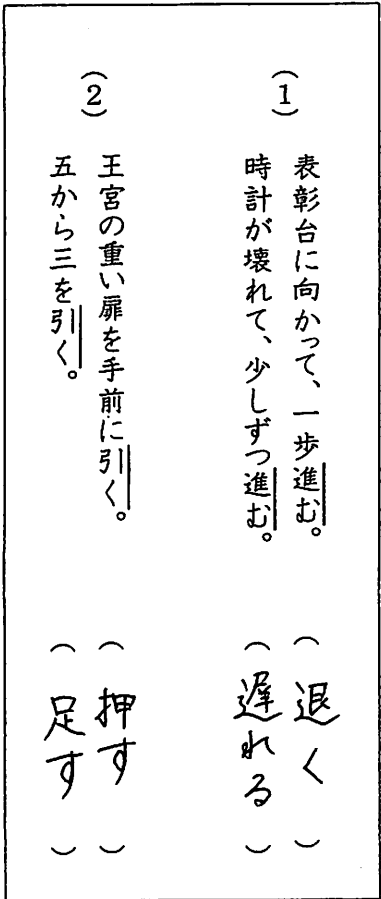 (1)
表彰台に向かって、一歩進む。(退く)
時計が壊れて、少しずつ進む。(遅れる)
(2)
王宮の重い扉を手前に引く。(押す)
五から三を引く。(足す)